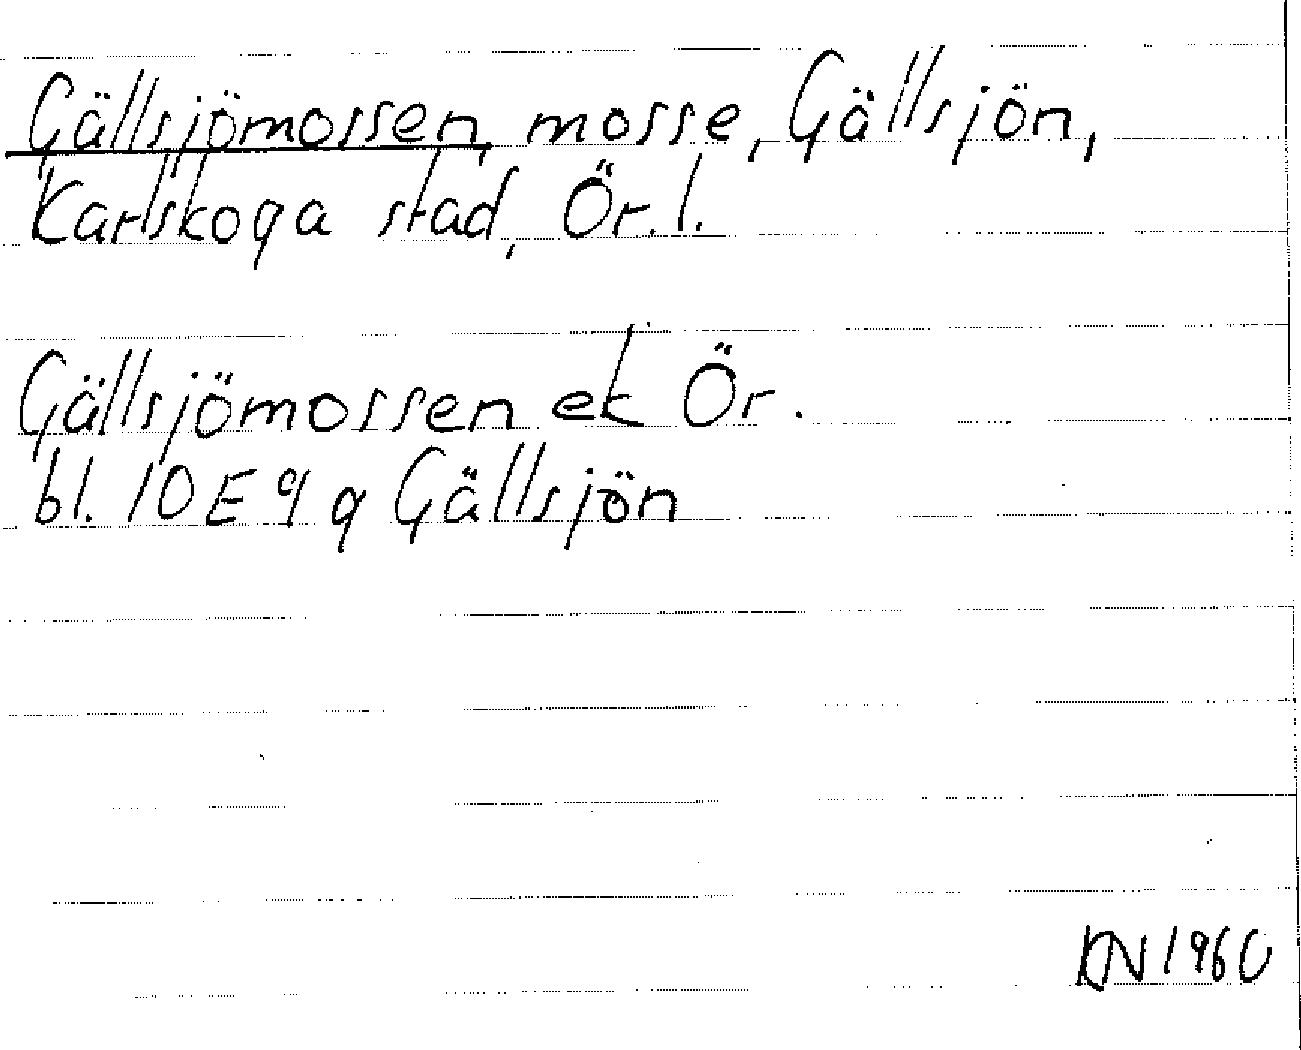 Gällsjömossen, mosse, Gällsjön,
Karlskoga stad, Ör. l.
Gällsjömossen ek Ör.
bl. 10 E 9 g Gällsjön
KN 1960